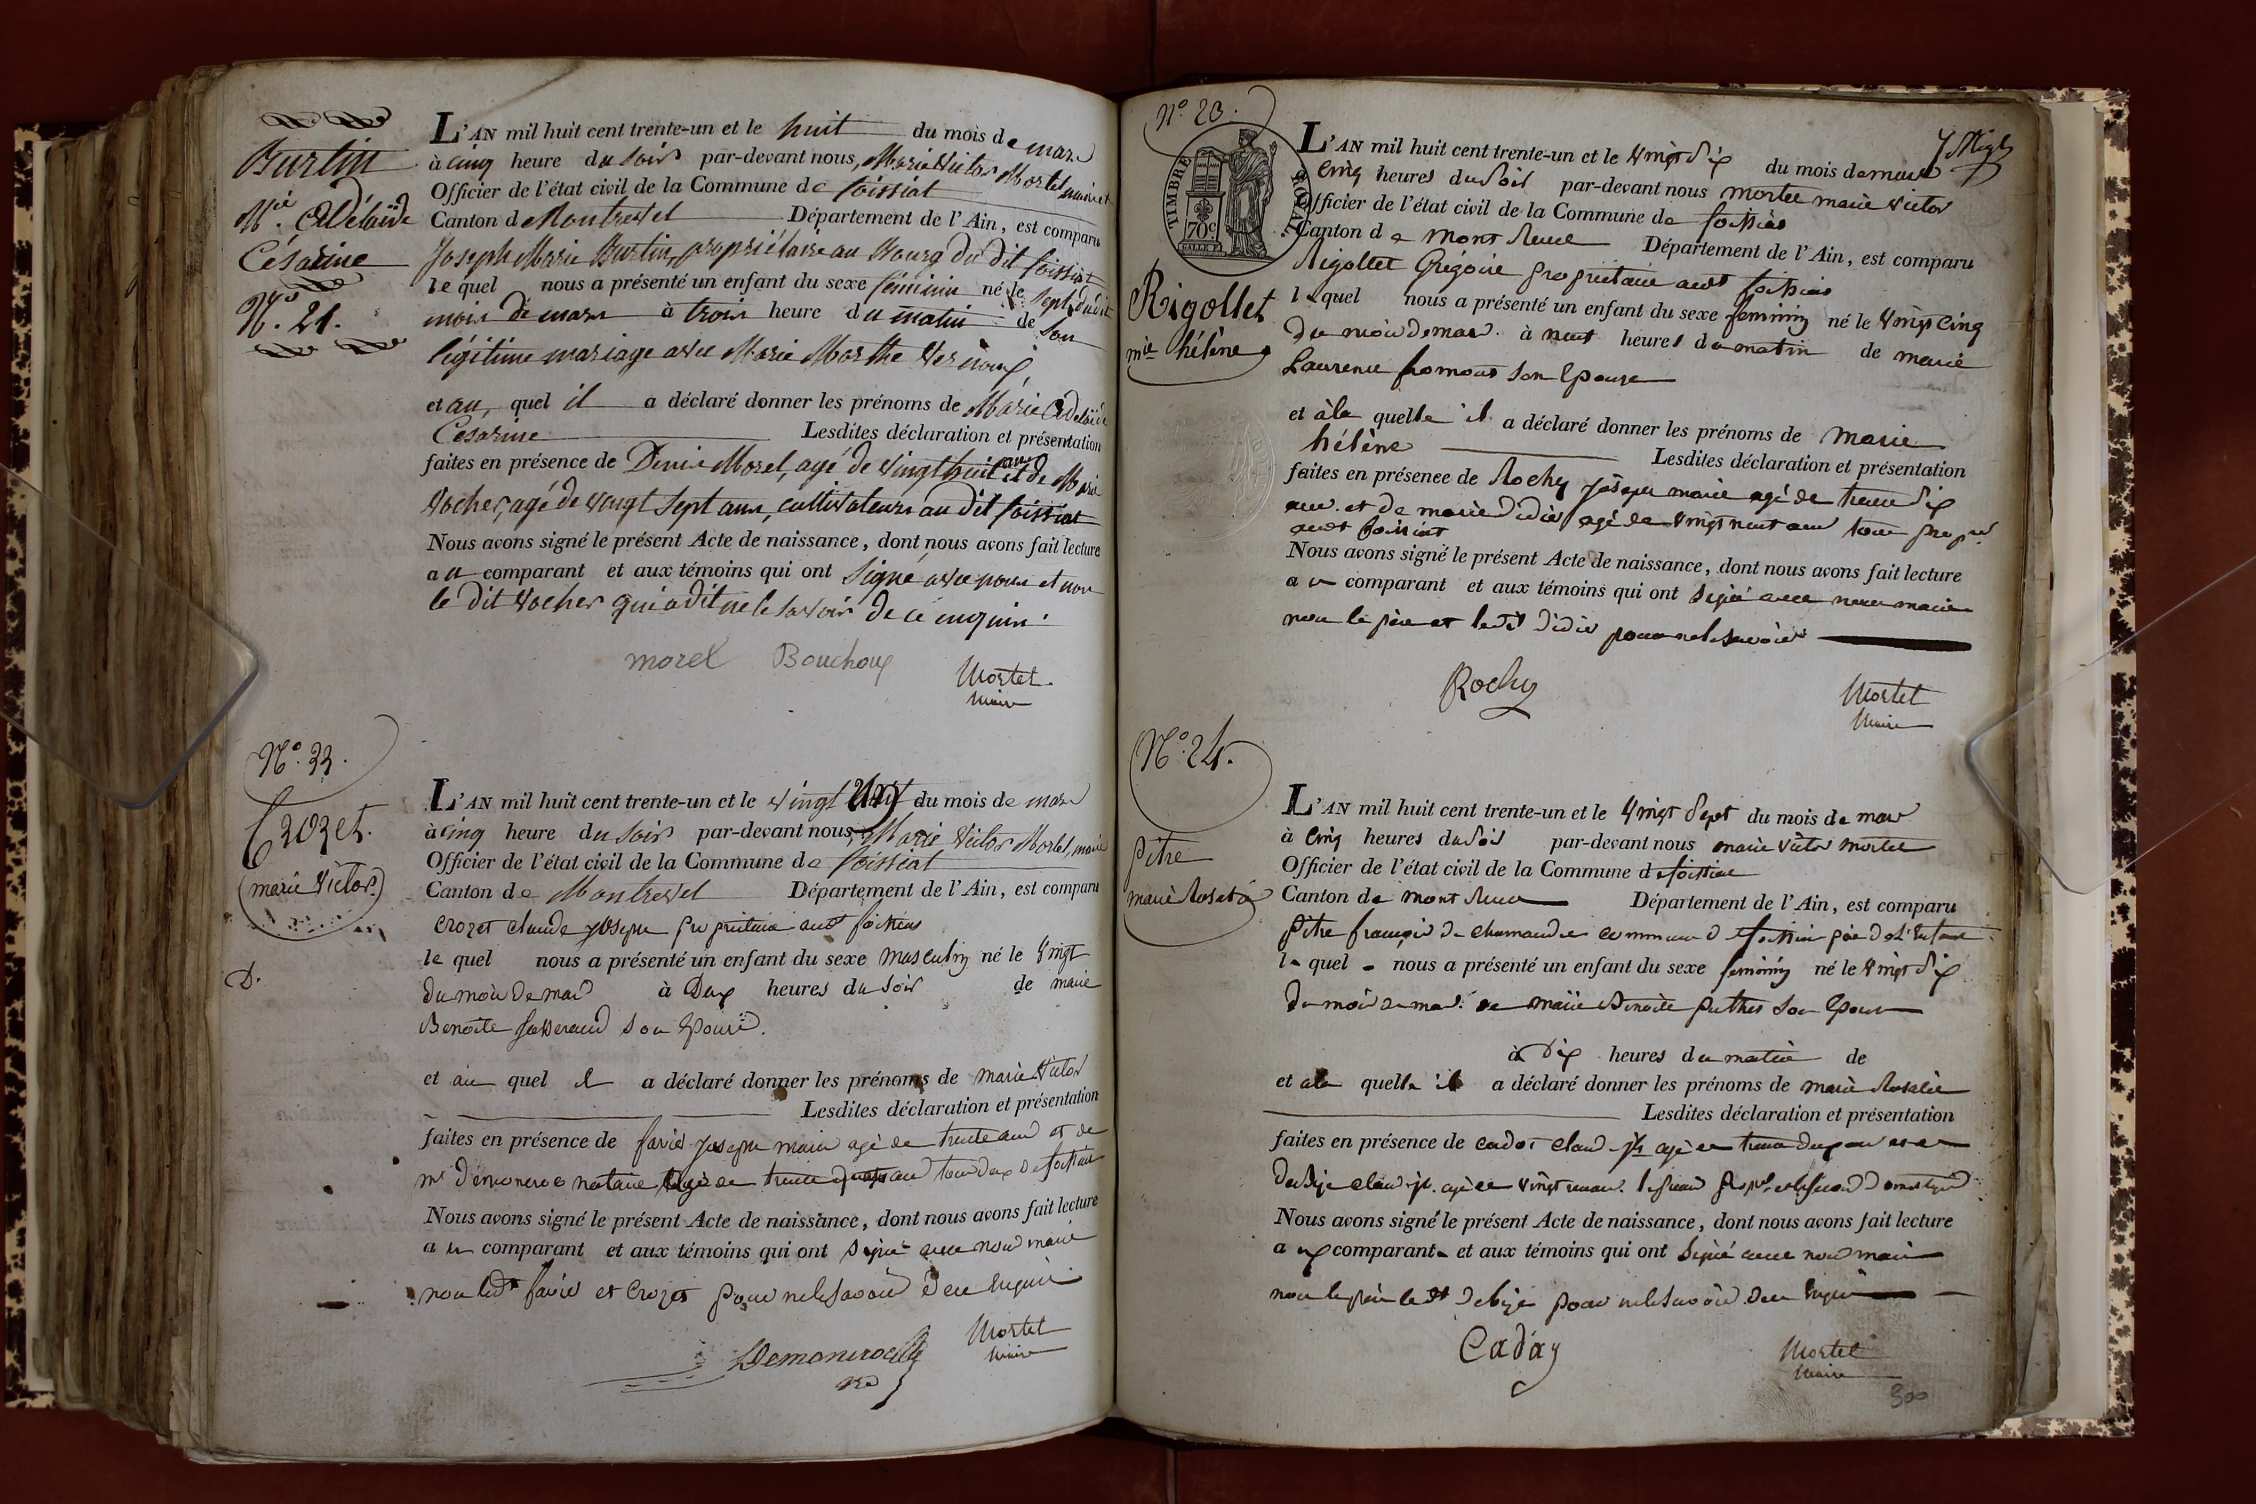 Burtin
Mie. Adélaïde
Césarine
N°. 21.
L'AN mil huit cent trente-un et le huit du mois de mars
à cinq heure du soir par-devant nous, Marie Victor Mortel maire et
Officier de l'état civil de la Commune de foissiat
Canton de Montrevel Département de l'Ain, est comparu
Joseph Marie Burtin, propriétaire au Bourg du dit foissiat
le quel nous a présenté un enfant du sexe féminin né le sept dudit
mois de mars à trois heure du matin de son
légitime mariage avec Marie Marthe
et au, quel il a déclaré donner les prénoms de Marie Adelaïde
Césarine Lesdites déclaration et présentation
faites en présence de Denis Morel, agé de vingt huit ans et de Marie
Vocher, agé de vingt sept ans, cultivateurs au dit foissiat
Nous avons signé le présent Acte de naissance, dont nous avons fait lecture
au comparant et aux témoins qui ont signé avec nous et non
le dit Vocher qui a dit ne le savoir de ce enquis.
morel Bouchoux Mortel
Maire
N°. 22.
Crozet.
(marie Victor)
D.
L'AN mil huit cent trente-un et le vingt du mois de mars
à cinq heure du soir par-devant nous, Marie Victor Mortel, maire
Officier de l'état civil de la Commune de foissiat
Canton de Montrevel Département de l'Ain, est comparu
Crozet claude joseph propriétaire audt foissiat
le quel nous a présenté un enfant du sexe masculin né le vingt
du mois de mars à Dux heures du soir de marie
Benoite son épouse.
et au quel il a déclaré donner les prénoms de marie Victor
Lesdites déclaration et présentation
faites en présence de favier joseph marie agé de trente ans et de
mr demonerod notaire agé de trente quatre ans tous deux de foissiat
Nous avons signé le présent Acte de naissance, dont nous avons fait lecture
au comparant et aux témoins qui ont signé avec nous maire
non ledt favier et Crozet pour ne le savoir de ce enquis
Mortel
Maire
N° 23.
TIMBRE ROYAL
70c.
Rigollet
mie hélène
L'AN mil huit cent trente-un et le vingt six du mois de mars
cinq heures du soir par-devant nous mortel marie victor
Officier de l'état civil de la Commune de foissiat
Canton de mont revel Département de l'Ain, est comparu
Rigollet Grégoire propriétaire audt foissiat
le quel nous a présenté un enfant du sexe feminin né le vingt cinq
du mois de mars à neuf heures du matin de marie
Laurence fromont son épouse
et à la quelle il a déclaré donner les prénoms de marie
hélène Lesdites déclaration et présentation
faites en présence de Rochy joseph marie agé de trente six
ans et de marie didier agé de vingt neuf ans tous propre
audt foissiat
Nous avons signé le présent Acte de naissance, dont nous avons fait lecture
au comparant et aux témoins qui ont signé avec nous maire
non le père et ledt didier pour ne le savoir
Rochy Mortel
Maire
N°. 24.
Pitre
marie Rosalie
L'AN mil huit cent trente-un et le vingt sept du mois de mars
à cinq heures du soir par-devant nous marie victor mortel
Officier de l'état civil de la Commune de foissiat
Canton de mont revel Département de l'Ain, est comparu
Pitre françois de chamandre commune de foissiat père de l'enfant
le quel nous a présenté un enfant du sexe feminin né le vingt six
du mois de mars de marie Benoite son épouse
à dix heures du matin de
et à la quelle il a déclaré donner les prénoms de marie Rosalie
Lesdites déclaration et présentation
faites en présence de claude jh agé de trente deux ans et de
claude jh. agé de vingt
Nous avons signé le présent Acte de naissance, dont nous avons fait lecture
au comparant et aux témoins qui ont signé avec nous maire
non le père ledt pour ne le savoir de ce enquis
Caday Mortel
Maire
300